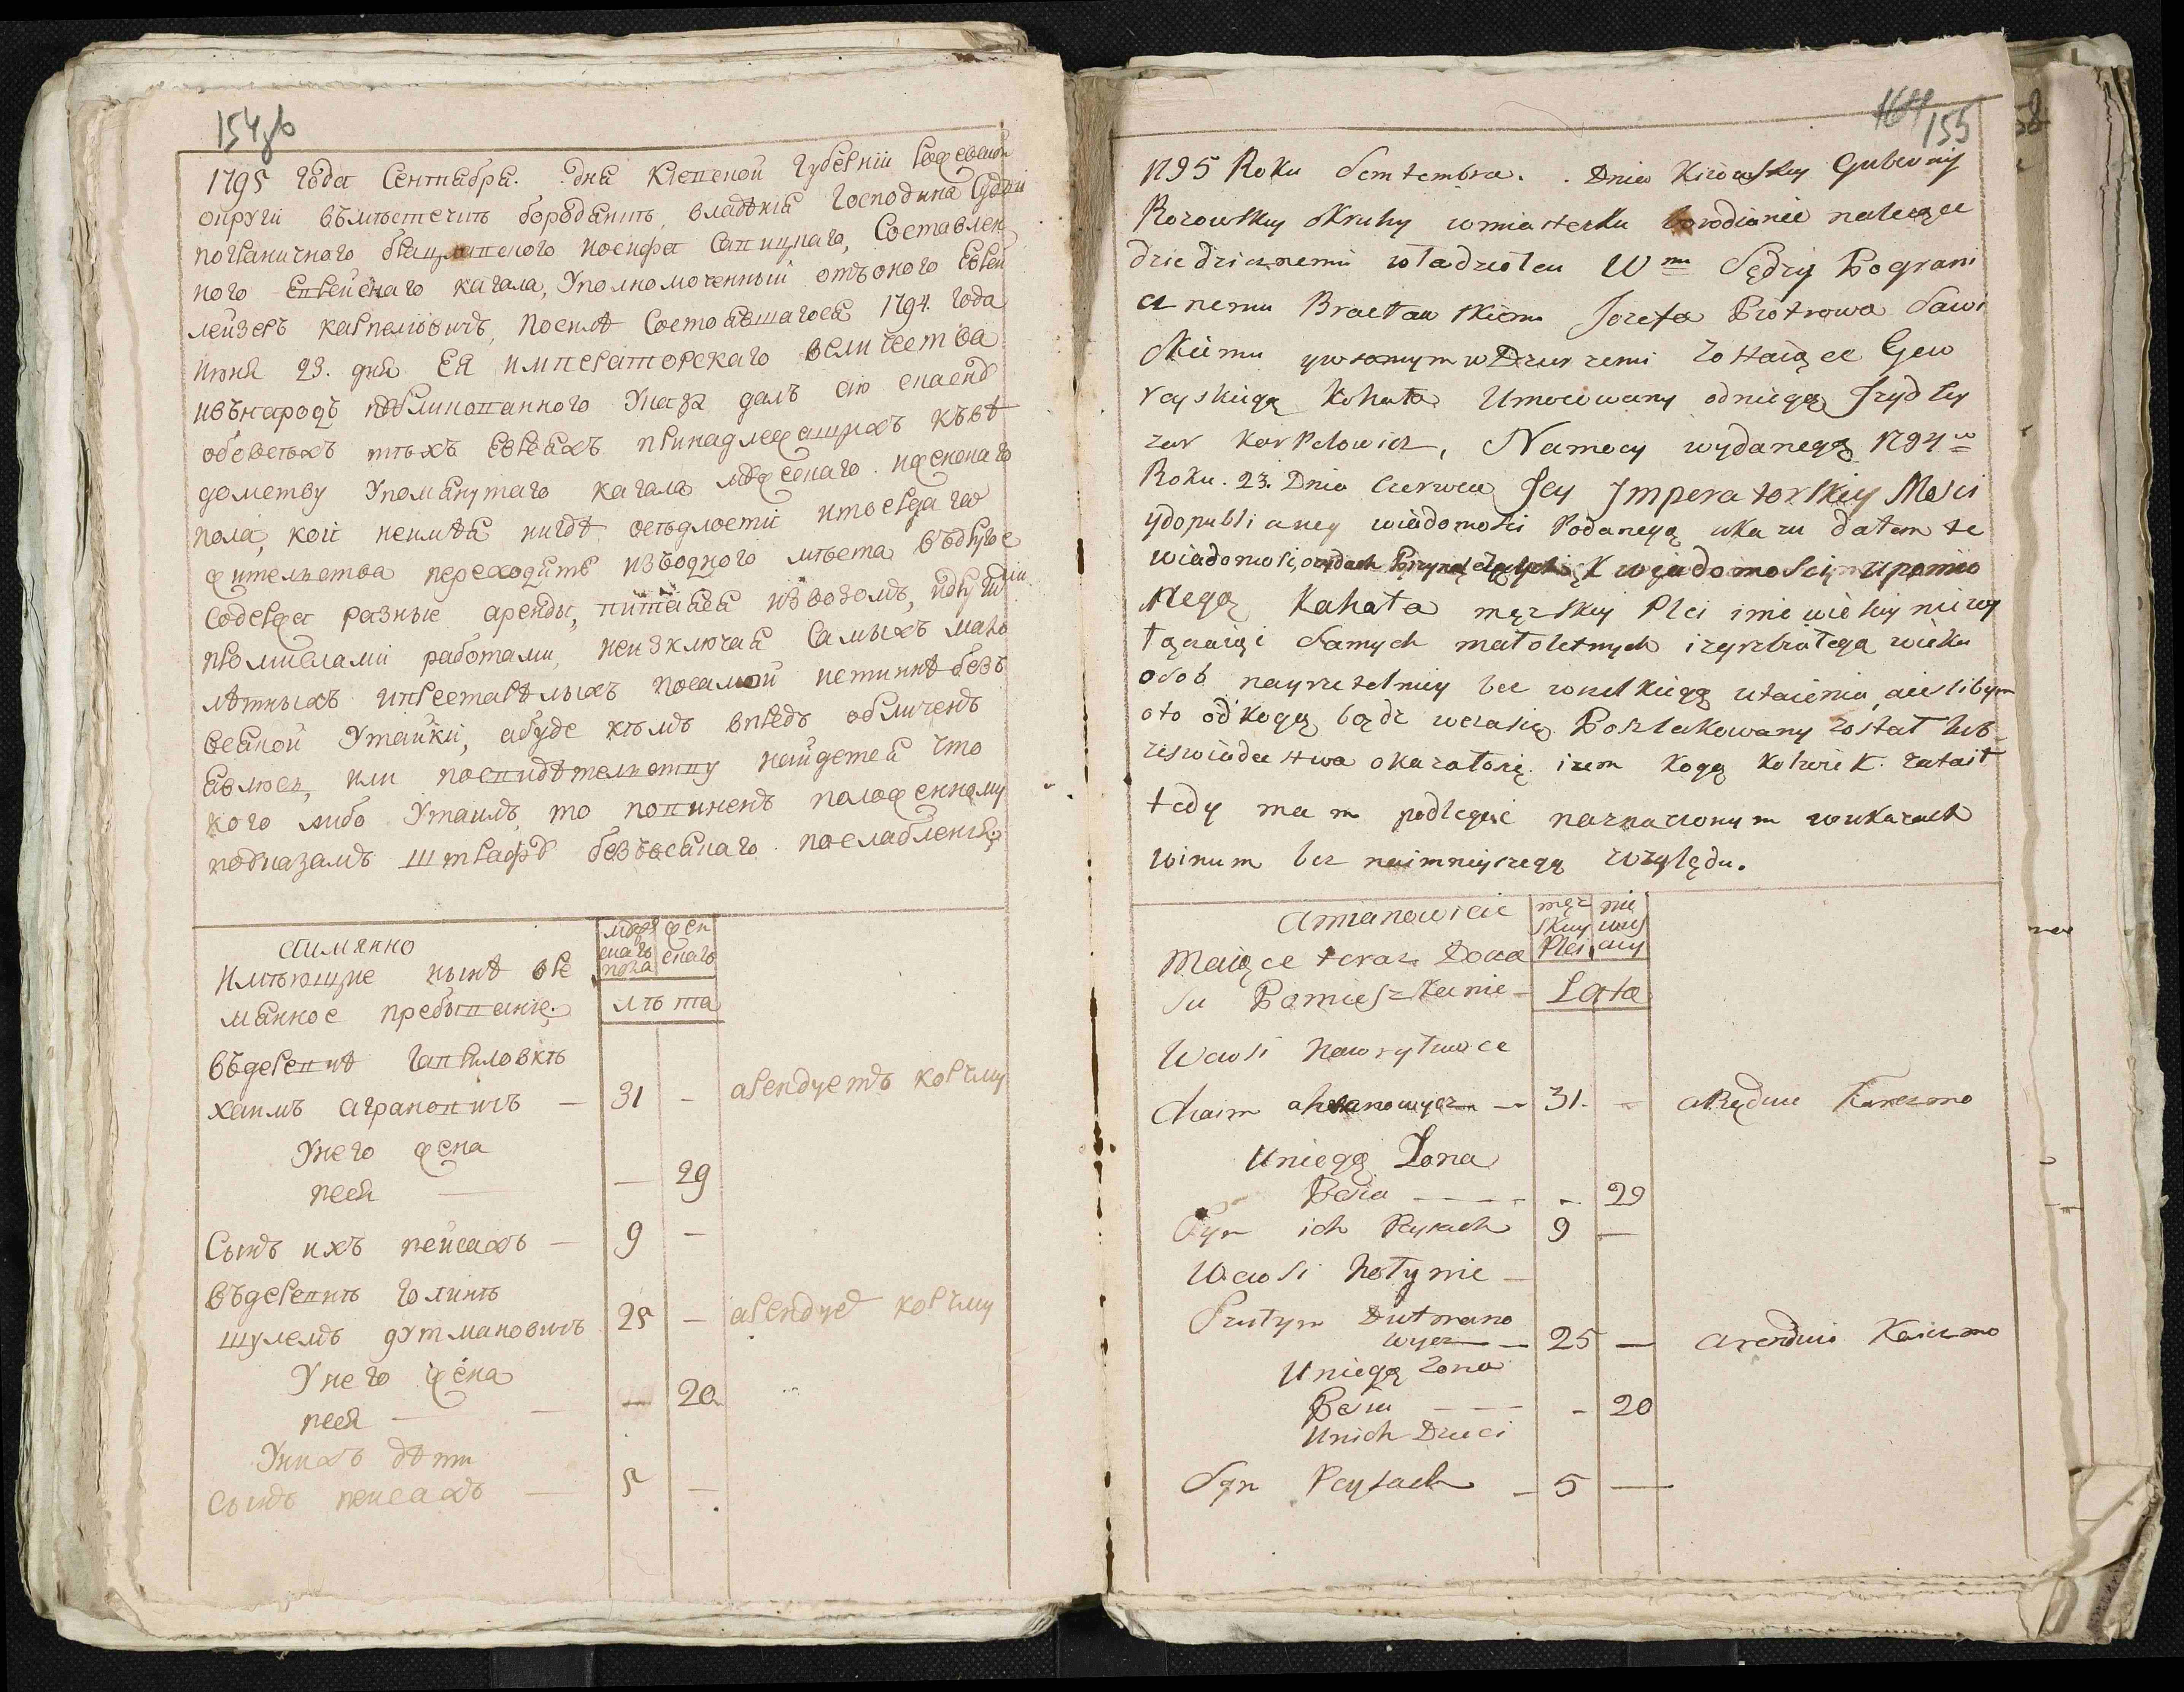 154об
1795 года Сентабра. дна Киевской Губерніи
округи въмѣстечкѣ бородянкѣ, владѣнія Господина Судіи
пограничного брацлавского иосифа Савицкаго, Составлен
ного Еврейскаго кагала, Уполномоченный отъоного Еврей
лейзеръ карпеловичъ, посилѣ Состоявшагося 1794. года
июня 23. дня Ея императорскаго величества
ивънародъ публикованного Указа далъ сию
обовсѣхъ тѣхъ Евреахъ принадлежащихъ къвѣ
домству Упоманутаго кагала мужескаго. иженскаго
пола, кои неимѣя нигдѣ осѣдлости итвердаго
жительства переходятъ изъодного мѣста въдругое
Содержа разные аренды, питаясь извозомъ, идругими
промислами работами, неизключая Самыхъ мало
лѣтныхъ ипрестарѣлыхъ посамой истиннѣ безъ
всякой Утайки, абуде кѣмъ впредь обличенъ
явлюсь, или посвидѣтельству найдется что
кого либо Утаилъ, то повиненъ положенному
поуказамъ штрафу безъвсякаго послабленія.
аимянно
имѣющие нынѣ вре
мянное пребывание.
мужескаго пола
женскаго
лѣта
въдеревнѣ гавриловкѣ
хаимъ аграновичъ — 31 - арендуетъ корчму
Унего жена
песя — — 29
Сынъ ихъ пейсахъ — 9 —
въдеревнѣ голинѣ
шулемъ дутмановичъ 25 — арендуе корчму
Унего жена
песя — — — 20
Унихъ дѣти
сынъ пеисахъ — 5 —
164
155
1795 Roku Semtembra. . Dnia Kiiowskiy Guberniy
okruhy wmiasteczku borodiance należące
dziedzicznemu władzcolcu Wmu Sędzy Pograni
cznemu Bracławskiemu Jozefa Piotrowa Sawi
ckiemu ywsamym w Dzierzeniu zostaiące Gew
reyskiegą Kohała Umocowany odniegą Jzyd ley
zor Karpelowicz, Namocy wydanegą 1794go
Roku. 23. Dnia Czerwca Jey Jmperatorskiey Mosci
ydopubliczney wiadomosci Podanegą ukazu datem te
wiadomosc, K wiadomosci upomio
Negą Kahała męzskiy Plci i niewieskiy niewy
łączaiąc Samych małoletnych izgrzbiałegą wieku
osob nayrzetelniey bez wszelkiegą utaienia, aieslibym
oto odkogą bądz wczasię Poszlakowany został lub
zeswiadectwa okazałosię. iżem Kogą Kolwiek. zataił
tedy mam podlegać naznaczonym wukazach
winum bez naimnieyszegą względu.
Amianowicie
Maiące teraz Docza
su Pomieszkanie —
męz skiey Plci
nie wies ciey
Lata
Wewsi hawryłuwce
Chaim ahranowycz — 31. — aRęduie Karczmo
Uniegą Zona
Pesia — — — - 29
Syn ich Peysach 9 —
Wewsi hołynie —
Szulym Dutmano
wycz — 25 — arenduie Karczmo
Uniegą zona
Pesia — — - 20
Unich Dzieci
Syn Peysach — 5 —